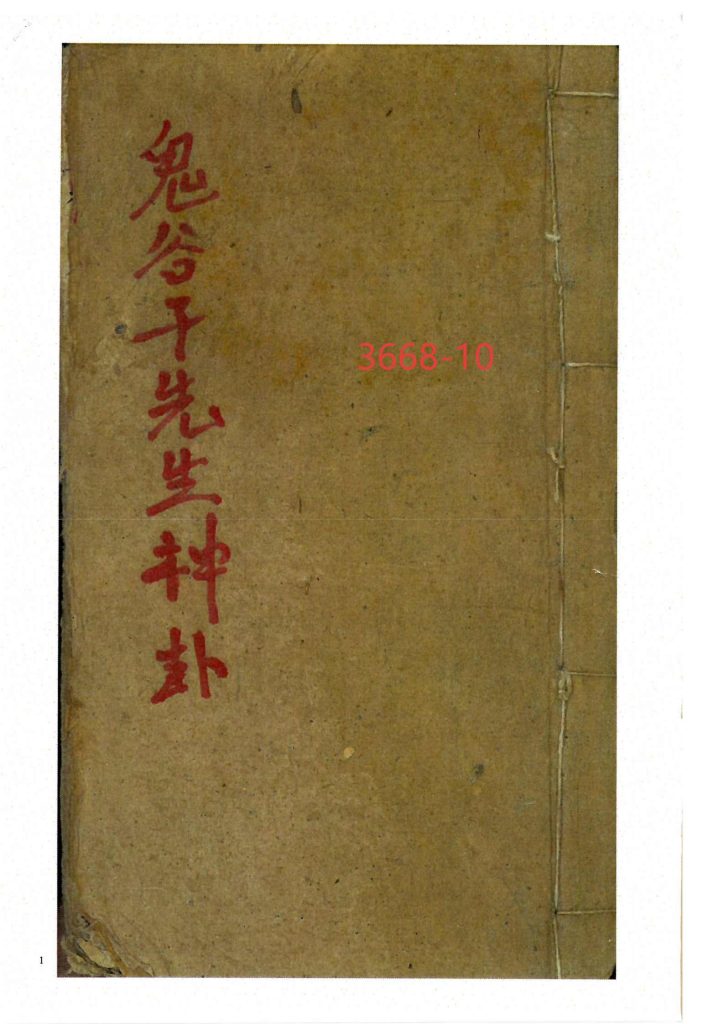 鬼谷子先生神卦
3668-10
1